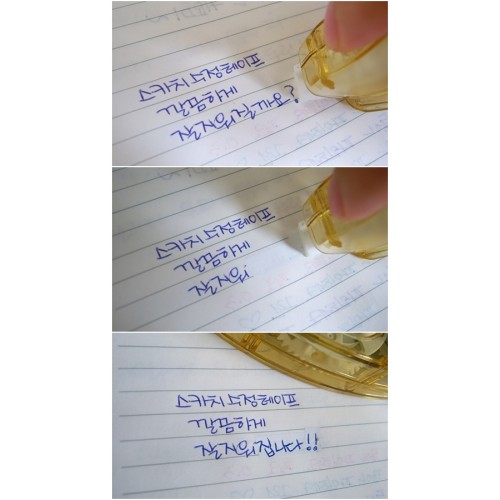 스카치 수정테이프
깔끔하게
잘 지워질까요?
스카치 수정테이프
깔끔하게
잘 지워
스카치 수정테이프
깔끔하게
잘 지워집니다!!